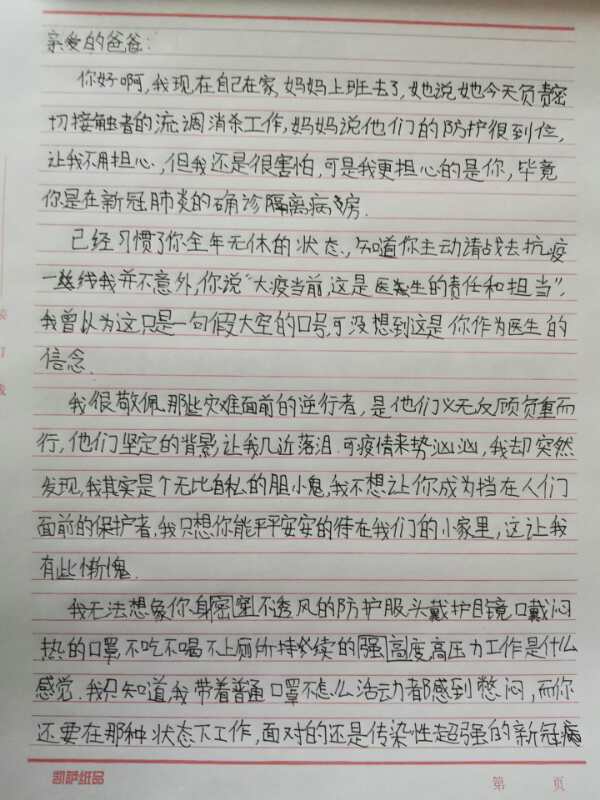 亲爱的爸爸：
你好啊，我现在自己在家，妈妈上班去了，她说她今天负责密
切接触者的流调消杀工作，妈妈说他们的防护很到位，
让我不用担心，但我还是很害怕，可是我更担心的是你，毕竟
你是在新冠肺炎的确诊隔离病房.
已经习惯了你全年无休的状态，知道你主动请战去抗疫
一线我并不意外，你说“大疫当前，这是医生的责任和担当”，
我曾认为这只是一句假大空的口号，可没想到这是你作为医生的
信念.
我很敬佩那些灾难面前的逆行者，是他们义无反顾负重而
行，他们坚定的背影让我几近落泪.可疫情来势汹汹，我却突然
发现，我其实是个无比自私的胆小鬼，我不想让你成为挡在人们
面前的保护者，我只想你能平平安安的待在我们的小家里，这让我
有些惭愧.
我无法想象你身密室不透风的防护服、头戴护目镜口戴闷
热的口罩不吃不喝不上厕所持续的强高度高压力工作是什么
感觉.我只知道，我带着普通口罩不怎么活动者都感到憋闷，而你
还要在那种状态下工作，面对的还是传染性超强的新冠
凯萨纸品
第 页